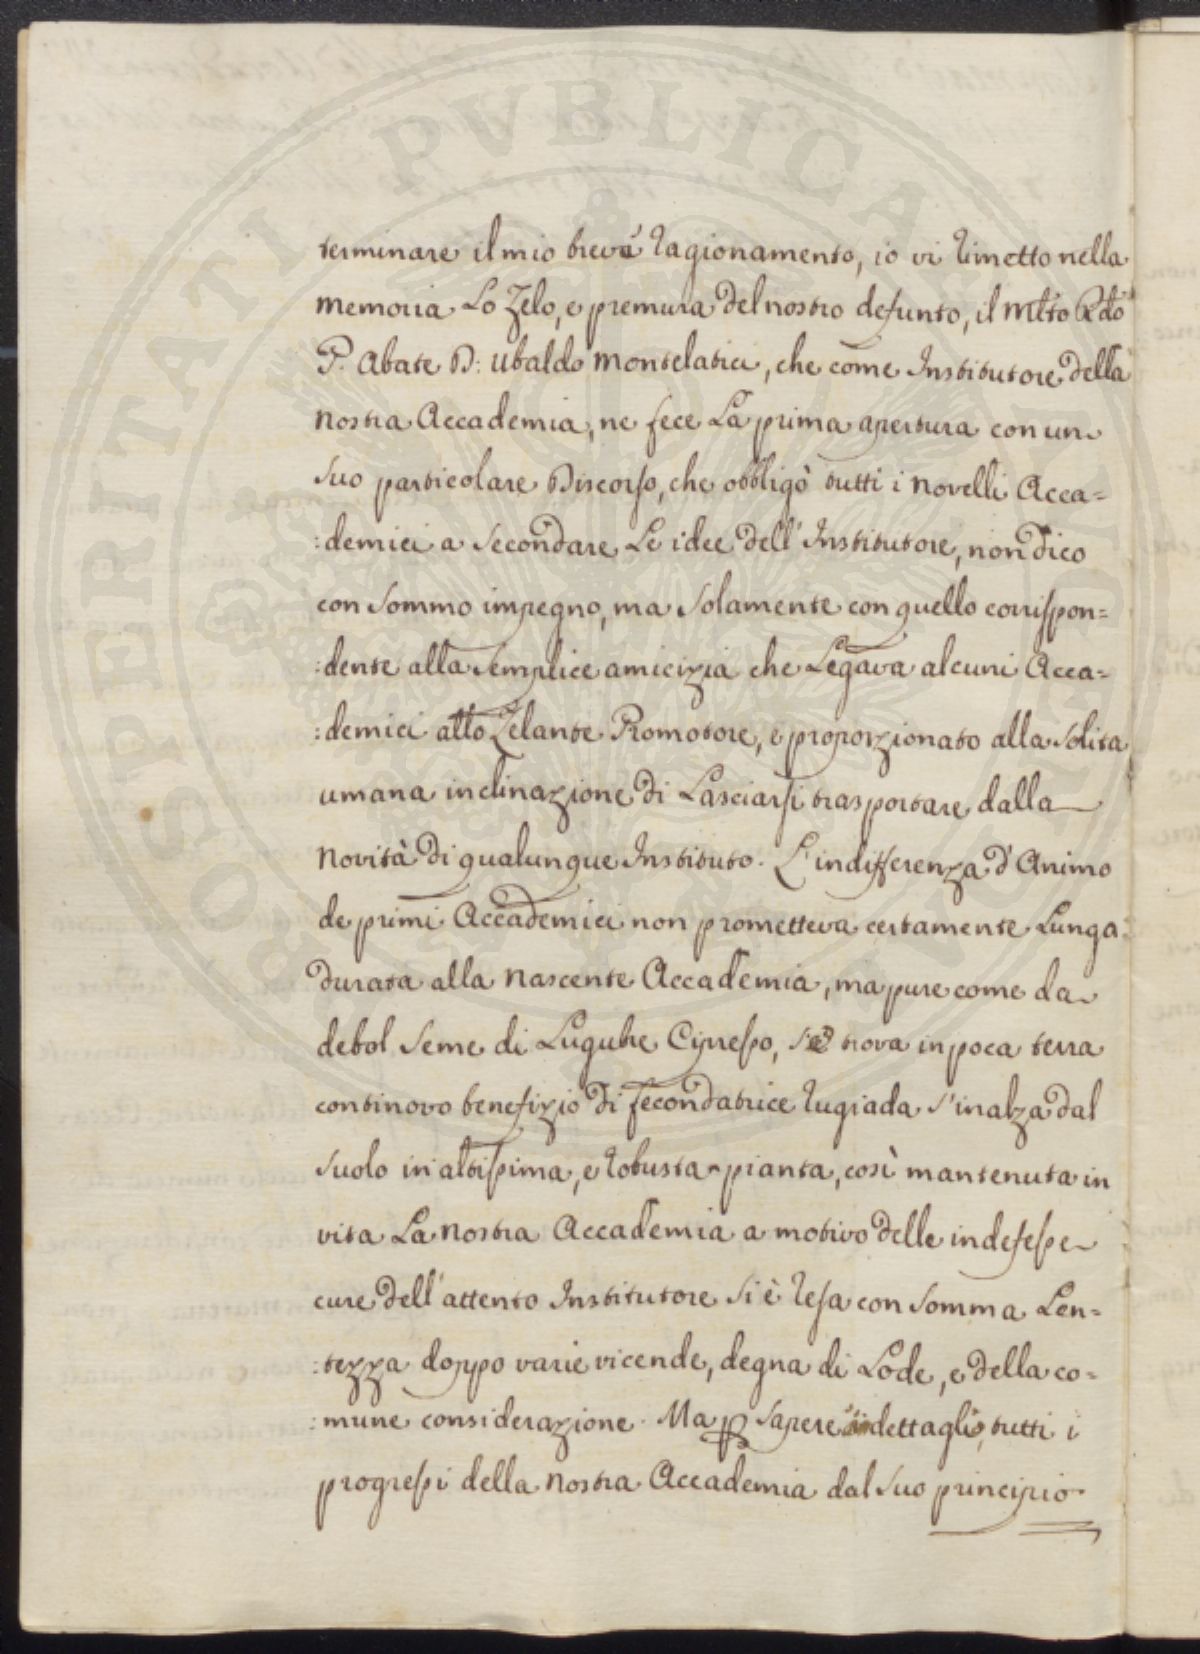 PROSPERITATI PVBLICAE
terminare il mio breve ragionamento, io vi rimetto nella
memoria Lo Zelo, e premura del nostro defunto, il Mlto Rdo
P. Abate D: Ubaldo Montelatici, che come Institutore della
nostra Accademia, ne fece La prima apertura con un
suo particolare Discorso, che obbligò tutti i novelli Acca=
:demici a secondare Le idee dell' Institutore, non dico
con sommo impegno, ma solamente con quello corrispon=
:dente alla semplice amicizia che Legava alcuni Acca=
:demici allo Zelante Promotore, e proporzionato alla solita
umana inclinazione di Lasciarsi trasportare dalla
novità di qualunque Instituto. L'indifferenza d'Animo
de primi Accademici non prometteva certamente Lunga
durata alla nascente Accademia, ma pure come da
debol seme di Lugubre Cipresso, se trova in poca terra
continovo benefizio di fecondatrice rugiada s'inalza dal
suolo in altissima, e robusta pianta, così mantenuta in
vita La nostra Accademia a motivo delle indefesse
cure dell'attento Institutore si è resa con somma Len=
:tezza doppo varie vicende, degna di Lode, e della co=
:mune considerazione. Ma p sapere in dettaglio, tutti i
progressi della nostra Accademia dal suo principio